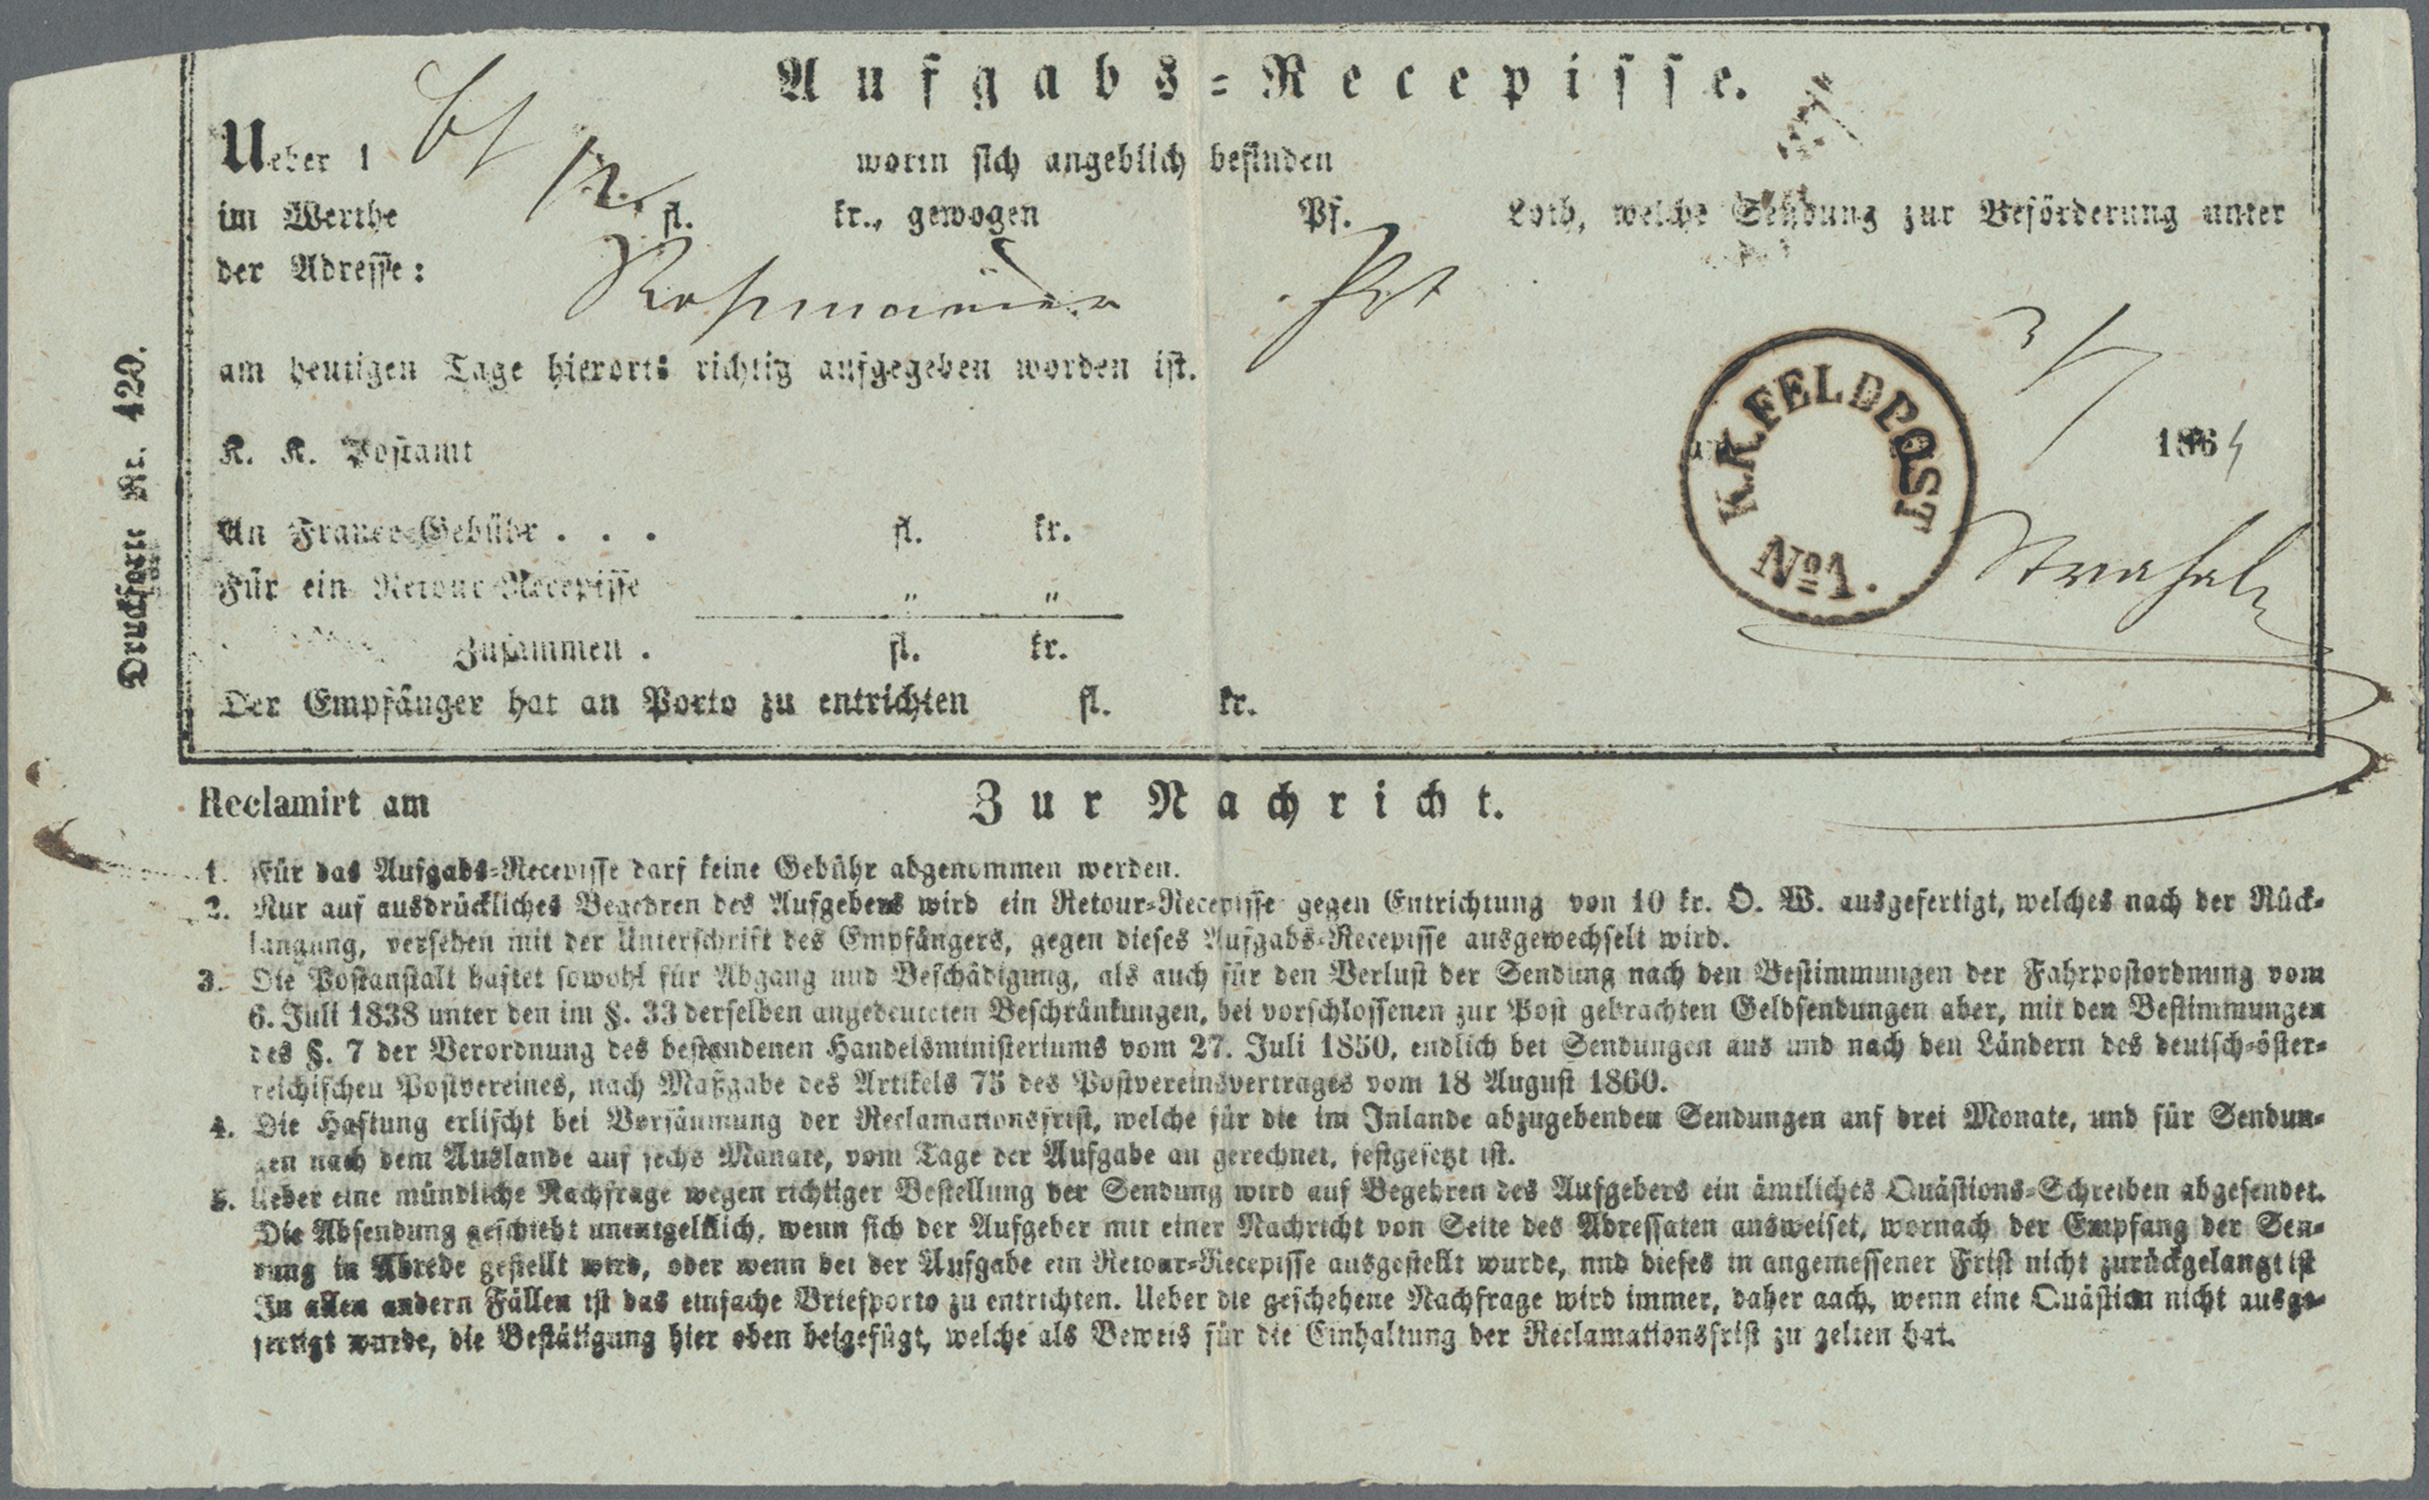 Aufgabs=Recepisse.
Ueber 1
worin sich angeblich befinden
im Werthe fl. kr., gewogen Pf. Loth, welche Sendung zur Beförderung unter
der Adresse:
am heutigen Tage hierorts richtig aufgegeben worden ist.
3/7
K. K. Postamt
1864
K.K.FELDPOST
No 1.
An Franco=Gebühr . . . fl. kr.
Für ein Retour=Recepisse " "
Zusammen . fl. kr.
Der Empfänger hat an Porto zu entrichten fl. kr.
Drucksorte Nr. 420.
Reclamirt am
Zur Nachricht.
1. Für das Aufgabs=Recepisse darf keine Gebühr abgenommen werden.
2. Nur auf ausdrückliches Begehren des Aufgebers wird ein Retour=Recepisse gegen Entrichtung von 10 kr. Ö. W. ausgefertigt, welches nach der Rück=
langung, versehen mit der Unterschrift des Empfängers, gegen dieses Aufgabs=Recepisse ausgewechselt wird.
3. Die Postanstalt haftet sowohl für Abgang und Beschädigung, als auch für den Verlust der Sendung nach den Bestimmungen der Fahrpostordnung vom
6. Juli 1838 unter den im §. 33 derselben angedeuteten Beschränkungen, bei vorschlossenen zur Post gebrachten Geldsendungen aber, mit den Bestimmungen
des §. 7 der Verordnung des bestandenen Handelsministeriums vom 27. Juli 1850, endlich bei Sendungen aus und nach den Ländern des deutsch=öster=
reichischen Postvereines, nach Maßgabe des Artikels 75 des Postvereinsvertrages vom 18 August 1860.
4. Die Haftung erlischt bei Versäumung der Reclamationsfrist, welche für die im Inlande abzugebenden Sendungen auf drei Monate, und für Sendun=
gen nach dem Auslande auf sechs Manate, vom Tage der Aufgabe an gerechnet, festgesetzt ist.
5. Ueber eine mündliche Nachfrage wegen richtiger Bestellung der Sendung wird auf Begehren des Aufgebers ein ämtliches Quästions=Schreiben abgesendet.
Die Absendung geschieht unentgeltlich, wenn sich der Aufgeber mit einer Nachricht von Seite des Adressaten ausweiset, wornach der Empfang der Sen=
dung in Abrede gestellt wird, oder wenn bei der Aufgabe ein Retour=Recepisse ausgestellt wurde, und dieses in angemessener Frist nicht zurückgelangt ist
In allen andern Fällen ist das einfache Briefporto zu entrichten. Ueber die geschehene Nachfrage wird immer, daher aach, wenn eine Quästion nicht ausge=
fertigt wurde, die Bestätigung hier oben beigefügt, welche als Beweis für die Einhaltung der Reclamationsfrist zu gelten hat.